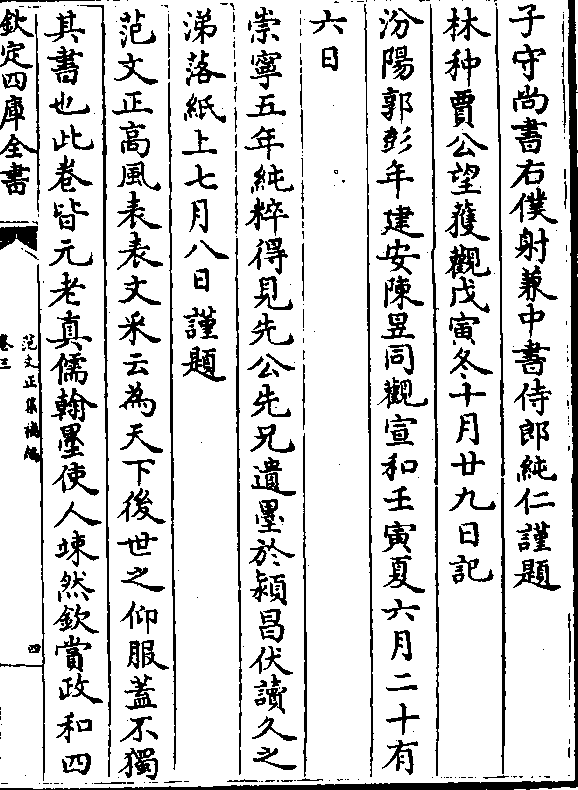 子守尚書右僕射兼中書侍郎純仁謹題
林种賈公望蒦觀戊寅冬十月廿九日記
汾陽郭彭年建安陳昱同觀宣和壬寅夏六月二十有
六日
崇寧五年純粹得見先公先兄遺墨於頴昌伏讀久之
涕落紙上七月八日謹題
范文正高風表表文采云為天下後世之仰服蓋不獨
其書也此卷皆元老真儒翰墨使人竦然欽賞政和四
欽定四庫全書
范文正集補編
卷三
四